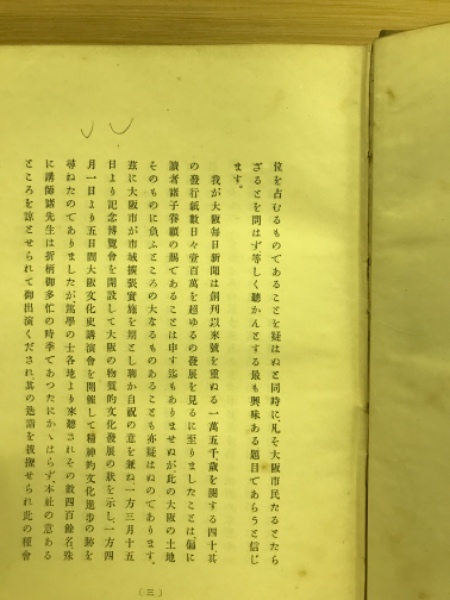 位を占むるものであることを疑はぬと同時に、凡そ大阪市民たるとたら
ざるとを問はず等しく聽かんとする最も興味ある題目であらうと信じ
ます。
我が大阪每日新聞は創刊以來號を重ねる一萬五千、歲を閱する四十、其
の發行紙數日々壹百萬を超ゆるの發展を見るに至りましたことは偏に
讀者諸子眷顧の賜であることは申す迄もありませぬが、此の大阪の土地
そのものに負ふところの大なるものあることも亦疑はぬのであります。
茲に大阪市が市域擴張實施を期とし聊か自祝の意を兼ね、一方三月十五
日より記念博覽會を開設して大阪の物質的文化發展の狀を示し、一方四
月一日より五日間大阪文化史講演會を開催して精神的文化進步の跡を
尋ねたのでありましたが、篤學の士各地より來聽されその數四百餘名、殊
に講師諸先生は折柄御多忙の時季であつたにかゝはらず、本社の意ある
ところを諒とせられて御出演くだされ其の造詣を披瀝せられ此の種會
(三)